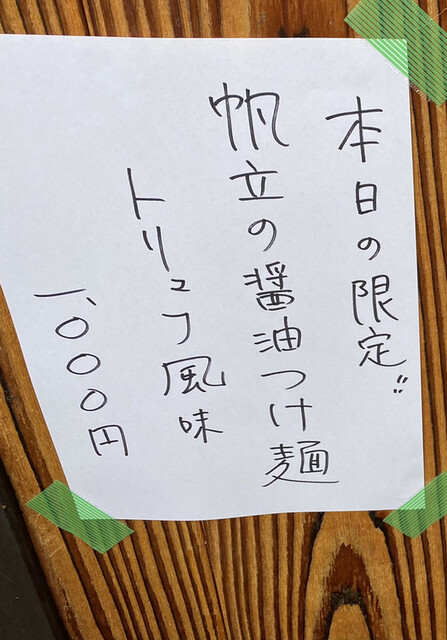 本日の限定‼
帆立の醤油つけ麺
トリュフ風味
一、〇〇〇円